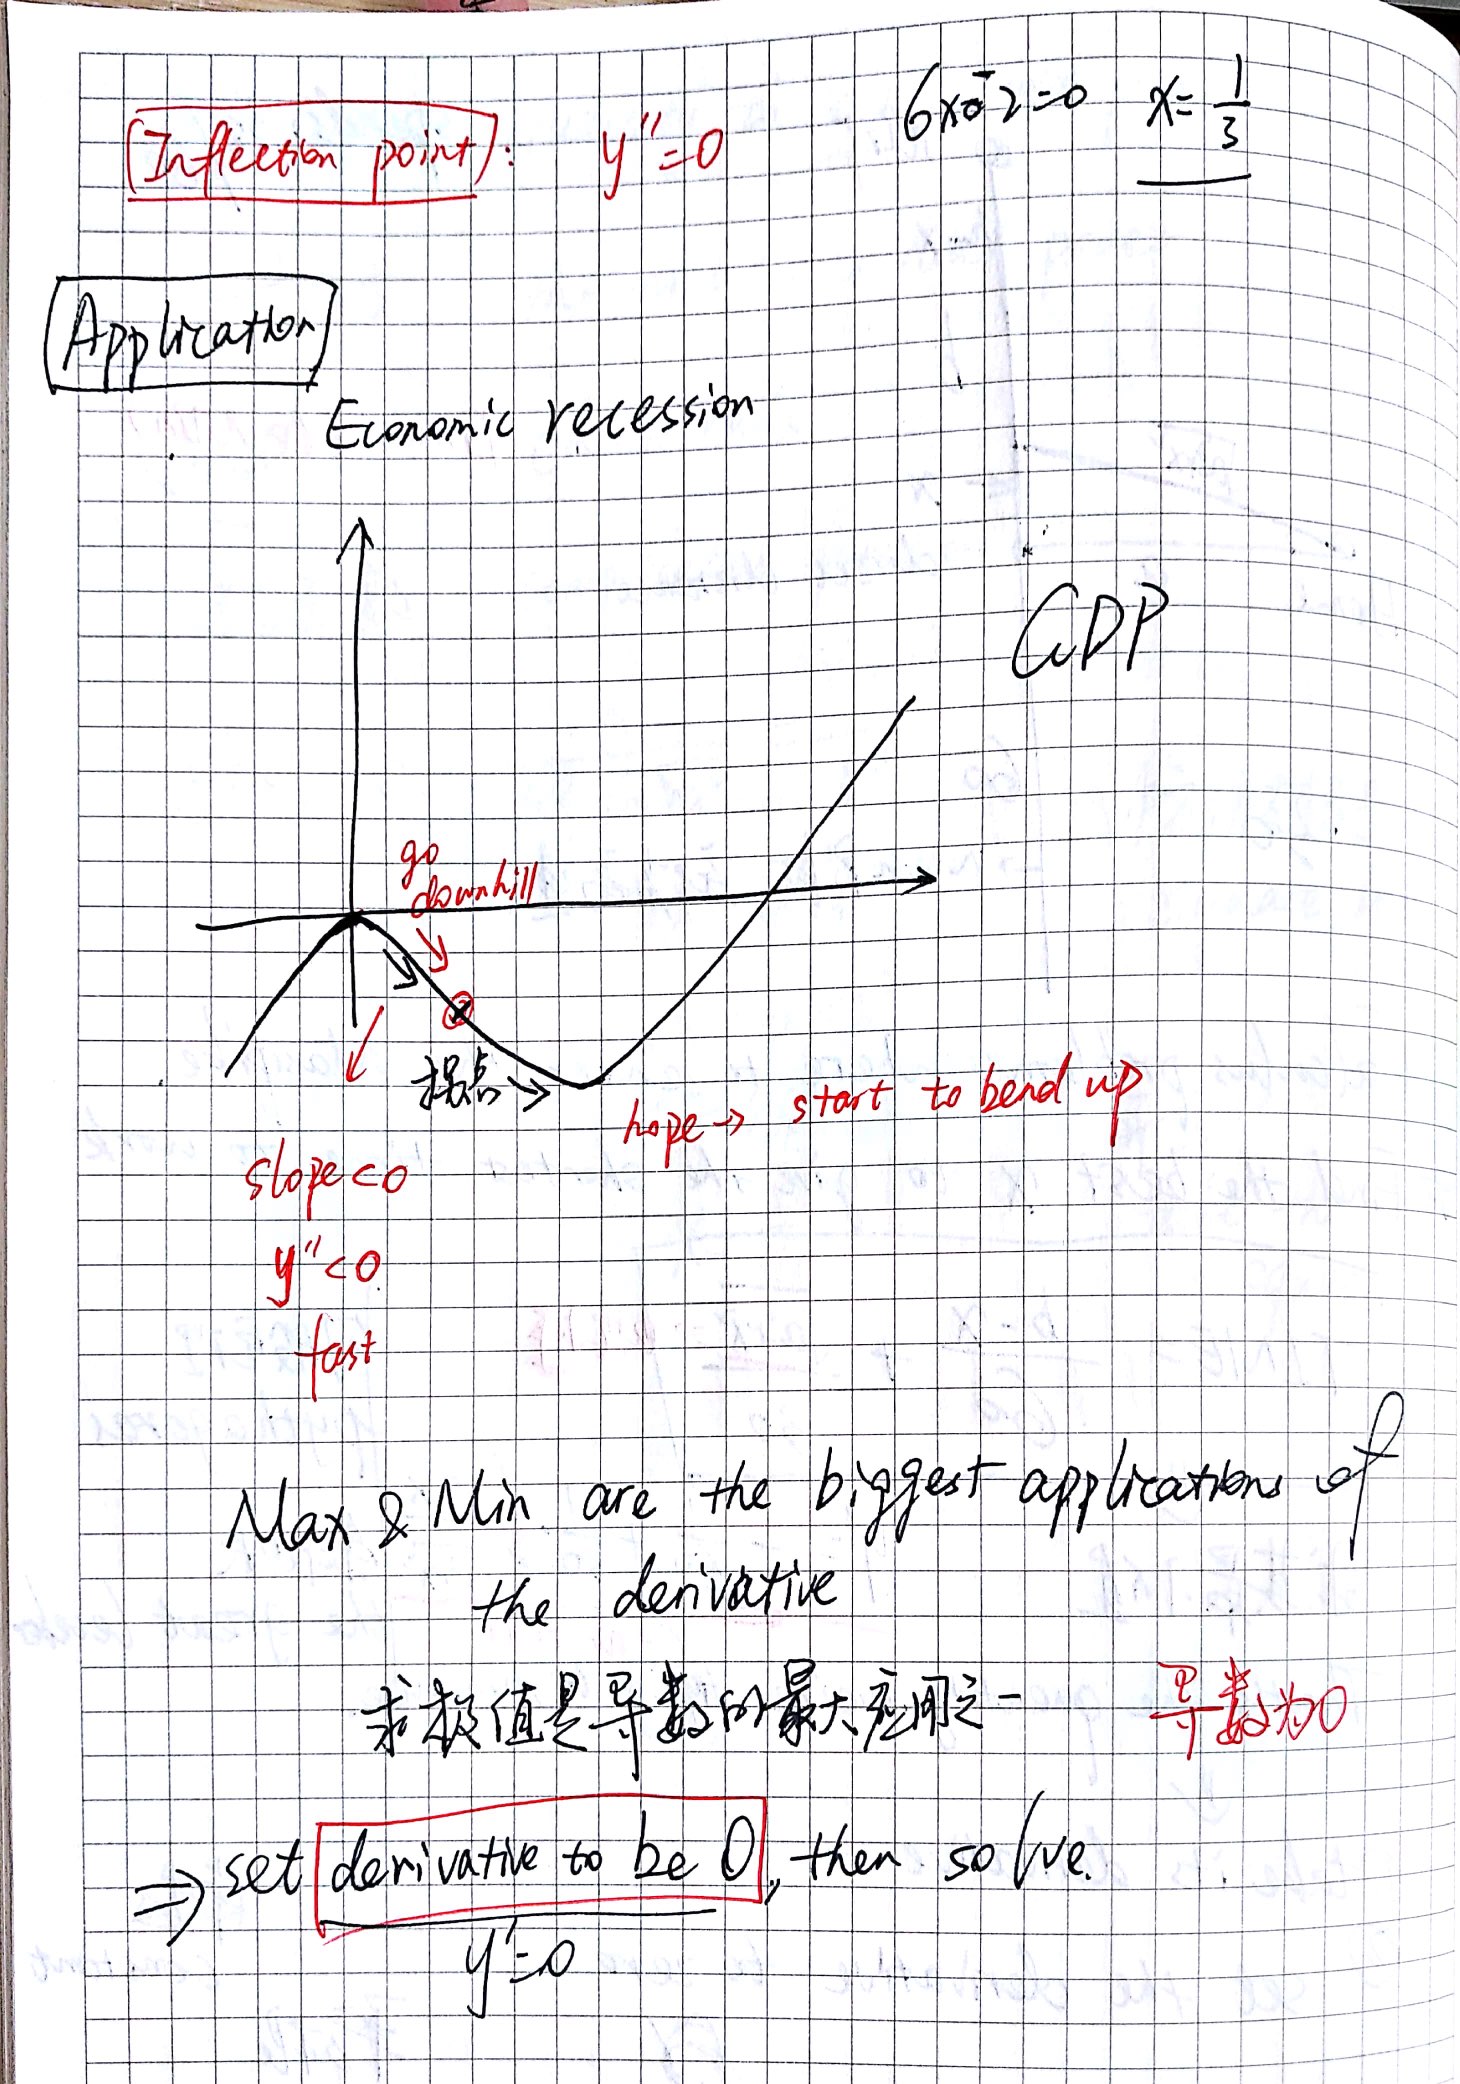 Inflection point: y''=0 6x-2=0 x=1/3
Application
Economic recession
GDP
go
downhill
拐点
hope→ start to bend up
slope<0
y''<0
fast
Max & Min are the biggest applications of
the derivative
求极值是导数的最大应用之一 导数为0
⇒ set derivative to be 0, then solve.
y'=0